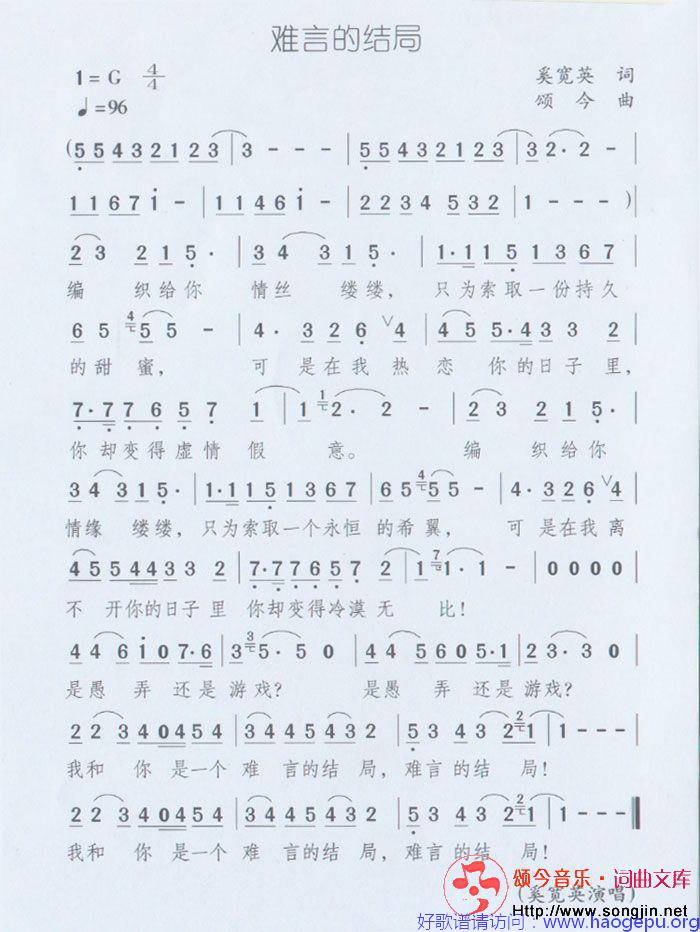 难言的结局
1 = G 4/4
奚宽英 词
♩=96
颂 今 曲
(5 5 4 3 2 1 2 3 | 3 - - - | 5 5 4 3 2 1 2 3 | 3 2 · 2 - |
1 1 6 7 i - | 1 1 4 6 i - | 2 2 3 4 5 3 2 | 1 - - - )
2 3 2 1 5 · | 3 4 3 1 5 · | 1 · 1 1 5 1 3 6 7
编 织给你 情丝 缕缕, 只为索取一份持久
6 5 4 5 5 - | 4 · 3 2 6 ∨ 4 | 4 5 5 · 4 3 3 2 |
的甜 蜜, 可 是在我热 恋 你的日子 里,
7 · 7 7 6 5 7 1 | 1 1 2 · 2 - | 2 3 2 1 5 · |
你却变得虚情假 意。 编 织给你
3 4 3 1 5 · | 1 · 1 1 5 1 3 6 7 | 6 5 4 5 5 - | 4 · 3 2 6 ∨ 4 |
情缘 缕缕, 只为索取一个永恒 的希翼, 可 是在我离
4 5 5 4 4 3 3 2 | 7 · 7 7 6 5 7 2 | 1 7 1 · 1 - | 0 0 0 0
不 开你的日子里 你却变得冷漠无 比!
4 4 6 i 0 7 · 6 | 3 5 · 5 0 | 4 4 5 6 0 5 · 1 | 3 3 0 |
是愚 弄 还是 游戏? 是愚 弄 还是 游戏?
2 2 3 4 0 4 5 4 | 3 4 4 5 4 3 2 | 5 3 4 3 2 2 1 | 1 - - - |
我和 你 是一个 难 言的结 局, 难言 的结 局!
2 2 3 4 0 4 5 4 | 3 4 4 5 4 3 2 | 5 3 4 3 2 2 1 | 1 - - - ‖
我和 你 是一个 难 言的结 局, 难言 的结 局!
颂今音乐·词曲文库
(奚宽英演唱)
Http://www.songjin.net
好歌谱请访问:www.haogepu.org